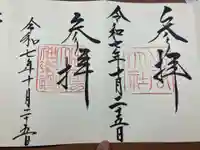 參拝
令和七年十月二十五日
參拝
令和七年十月二十五日